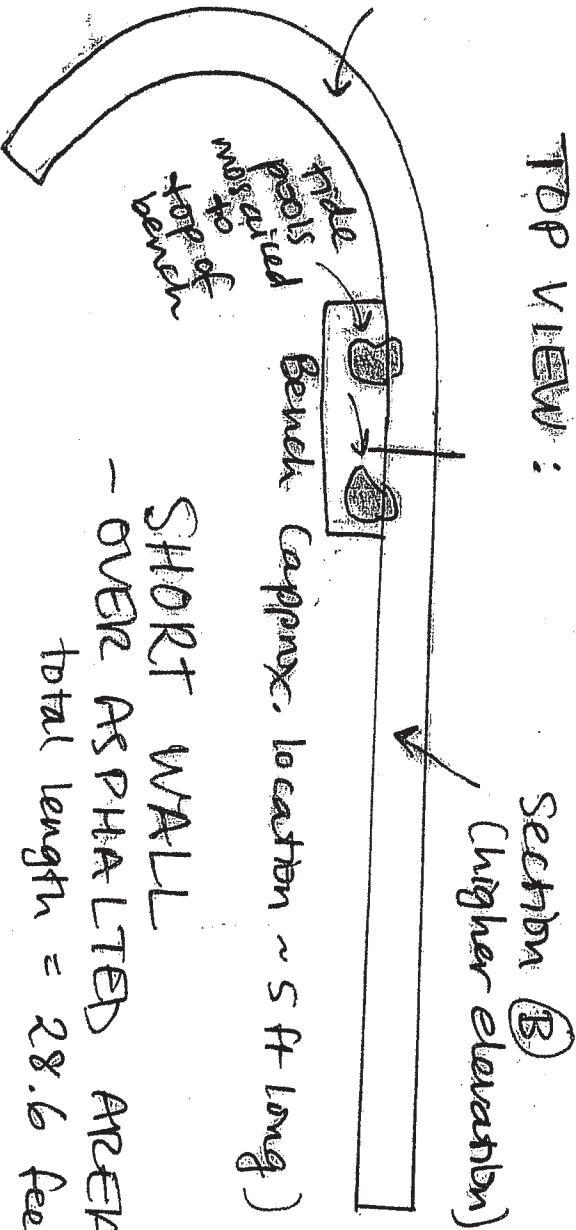 TOP VIEW :
Section B
(higher elevation)
tide
pools
mosaiced
to
top of
bench
Bench (approx. location ~ 5 ft long)
SHORT WALL
- OVER ASPHALTED AREA
total length = 28.6 fee